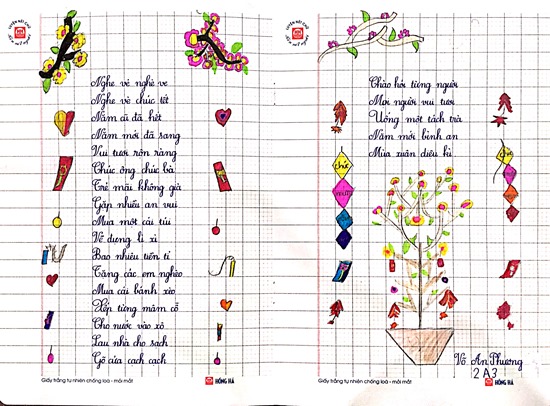 Nghe vẻ nghe ve
Nghe vè chúc tết
Năm cũ đã hết
Năm mới đã sang
Vui tươi rộn ràng
Chúc ông chúc bà
Trẻ mãi không già
Gặp nhiều an vui
Mua một cái túi
Về đựng lì xì
Bao nhiêu tiền tỉ
Tặng các em nghèo
Mua cái bánh xèo
Xếp từng mâm cỗ
Cho nước vào xô
Lau nhà cho sạch
Gõ cửa cạch cạch
Giấy trắng tự nhiên chống loá - mỏi mắt
HỒNG HÀ
Chào hỏi từng người
Mọi người vui tươi
Uống một tách trà
Năm mới bình an
Mùa xuân diệu kì
chúc
mừng
chúc
mừng
Võ An Phương
2A3
Giấy trắng tự nhiên chống loá - mỏi mắt
HỒNG HÀ